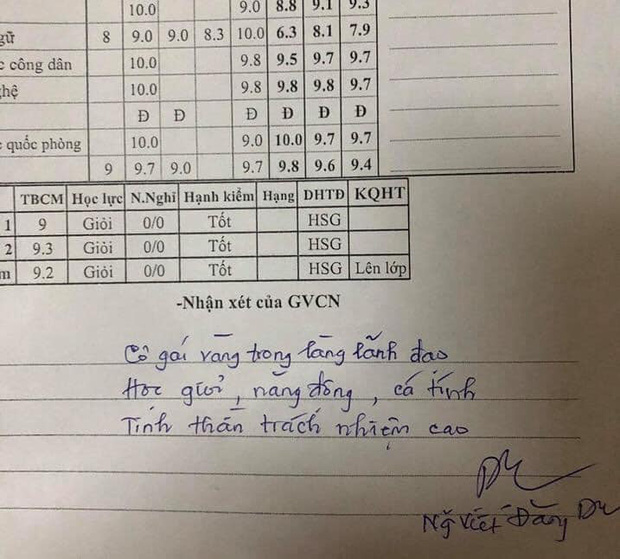 10.0 9.0 8.8 9.1 9.3
gữ 8 9.0 9.0 8.3 10.0 6.3 8.1 7.9
c công dân 10.0 9.8 9.5 9.7 9.7
ghệ 10.0 9.8 9.8 9.8 9.7
Đ Đ Đ Đ Đ Đ
c quốc phòng 10.0 9.0 10.0 9.7 9.7
9 9.7 9.0 9.7 9.8 9.6 9.4
TBCM Học lực N.Nghỉ Hạnh kiểm Hạng DHTĐ KQHT
1 9 Giỏi 0/0 Tốt HSG
2 9.3 Giỏi 0/0 Tốt HSG
m 9.2 Giỏi 0/0 Tốt HSG Lên lớp
-Nhận xét của GVCN
Cô gái vàng trong làng lãnh đạo
Học giỏi, năng động, cá tính
Tinh thần trách nhiệm cao
Ng Viết Đăng Du